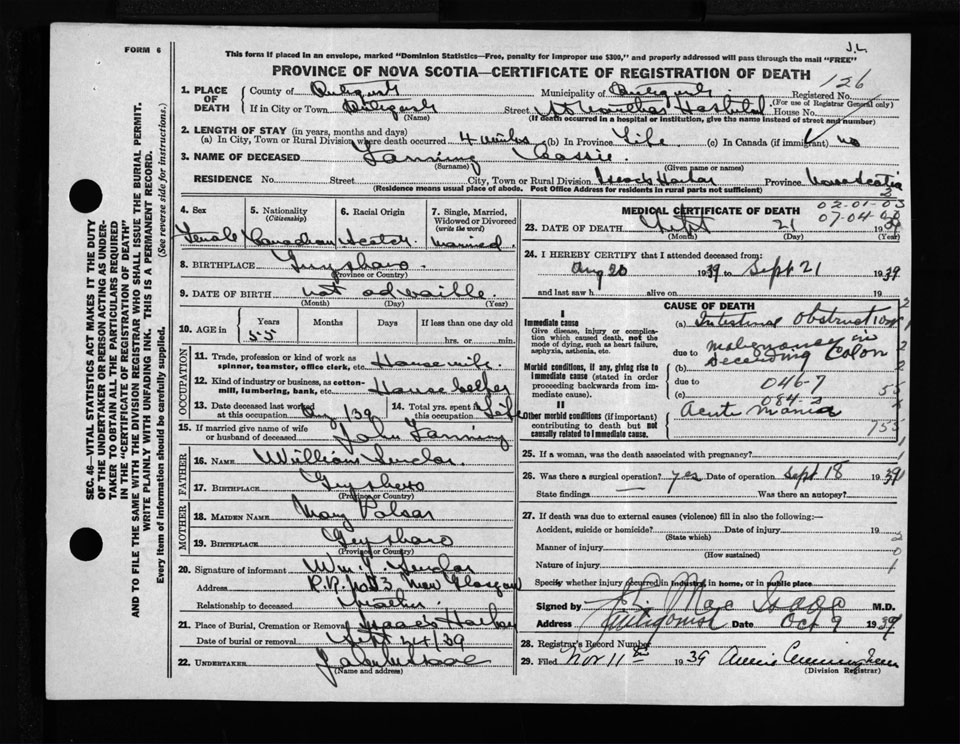 J.L
FORM 6
This form if placed in an envelope, marked "Dominion Statistics—Free, penalty for improper use $300," and properly addressed will pass through the mail "FREE"
PROVINCE OF NOVA SCOTIA—CERTIFICATE OF REGISTRATION OF DEATH
126
1. PLACE OF DEATH
County of
Municipality of
Registered No.
(For use of Registrar General only)
If in City or Town
(Name)
Street St Hospital House No.
(If death occurred in a hospital or institution, give the name instead of street and number)
2. LENGTH OF STAY (in years, months and days)
(a) In City, Town or Rural Division where death occurred 4 (b) In Province Life (c) In Canada (if immigrant) no
3. NAME OF DECEASED Fanning Cassie.
(Surname) (Given name or names)
RESIDENCE No. Street City, Town or Rural Division Isaacs Harbor Province Nova Scotia
(Residence means usual place of abode. Post Office Address for residents in rural parts not sufficient)
4. Sex
Female
5. Nationality
(Citizenship)
Canadian
6. Racial Origin
Scotch
7. Single, Married, Widowed or Divorced
(write the word)
married
8. BIRTHPLACE Guysboro
(Province or Country)
9. DATE OF BIRTH not
(Month) (Day) (Year)
10. AGE in
Years Months Days If less than one day old
55
hrs. or min.
OCCUPATION
11. Trade, profession or kind of work as spinner, teamster, office clerk, etc. Housewife
12. Kind of industry or business, as cotton-mill, lumbering, bank, etc.
13. Date deceased last worked at this occupation Aug /39
14. Total yrs. spent in this occupation Life
15. If married give name of wife or husband of deceased John Fanning
FATHER
16. NAME William
17. BIRTHPLACE
(Province or Country)
MOTHER
18. MAIDEN NAME Mary
19. BIRTHPLACE Guysboro
(Province or Country)
20. Signature of informant Wm.
Address R.R. No 3 New Glasgow
Relationship to deceased
21. Place of Burial, Cremation or Removal Isaacs Harbor
Date of burial or removal Sept 24/39
22. UNDERTAKER
(Name and address)
MEDICAL CERTIFICATE OF DEATH
02-01-03
07-04-
23. DATE OF DEATH Sept 21 1939
(Month) (Day) (Year)
24. I HEREBY CERTIFY that I attended deceased from:
Aug 20 1939 to Sept 21 1939
and last saw h alive on 19
CAUSE OF DEATH
I
Immediate cause
Give disease, injury or complication which caused death, not the mode of dying, such as heart failure, asphyxia, asthenia, etc.
(a) Intestinal Obstruction
Morbid conditions, if any, giving rise to immediate cause (stated in order proceeding backwards from immediate cause).
due to
(b) Malignancy in Descending Colon
due to
(c) 046-7
084-2
II
Other morbid conditions (if important) contributing to death but not causally related to immediate cause.
Acute Mania
25. If a woman, was the death associated with pregnancy?
26. Was there a surgical operation? yes Date of operation Sept 18 1939
State findings — Was there an autopsy?
27. If death was due to external causes (violence) fill in also the following:—
Accident, suicide or homicide? Date of injury 19
(State which)
Manner of injury
(How sustained)
Nature of injury
Specify whether injury occurred in industry, in home, or in public place
Signed by Mac Isaac M.D.
Address Antigonish Date Oct 9 1939
28. Registrar's Record Number
29. Filed Nov 11th 1939 Annie Cunningham
(Division Registrar)
SEC. 46—VITAL STATISTICS ACT MAKES IT THE DUTY
OF THE UNDERTAKER OR PERSON ACTING AS UNDER-
TAKER TO OBTAIN ALL THE PARTICULARS REQUIRED
IN THE "CERTIFICATE OF REGISTRATION OF DEATH"
AND TO FILE THE SAME WITH THE DIVISION REGISTRAR WHO SHALL ISSUE THE BURIAL PERMIT.
WRITE PLAINLY WITH UNFADING INK. THIS IS A PERMANENT RECORD.
Every item of information should be carefully supplied. (See reverse side for instructions.)